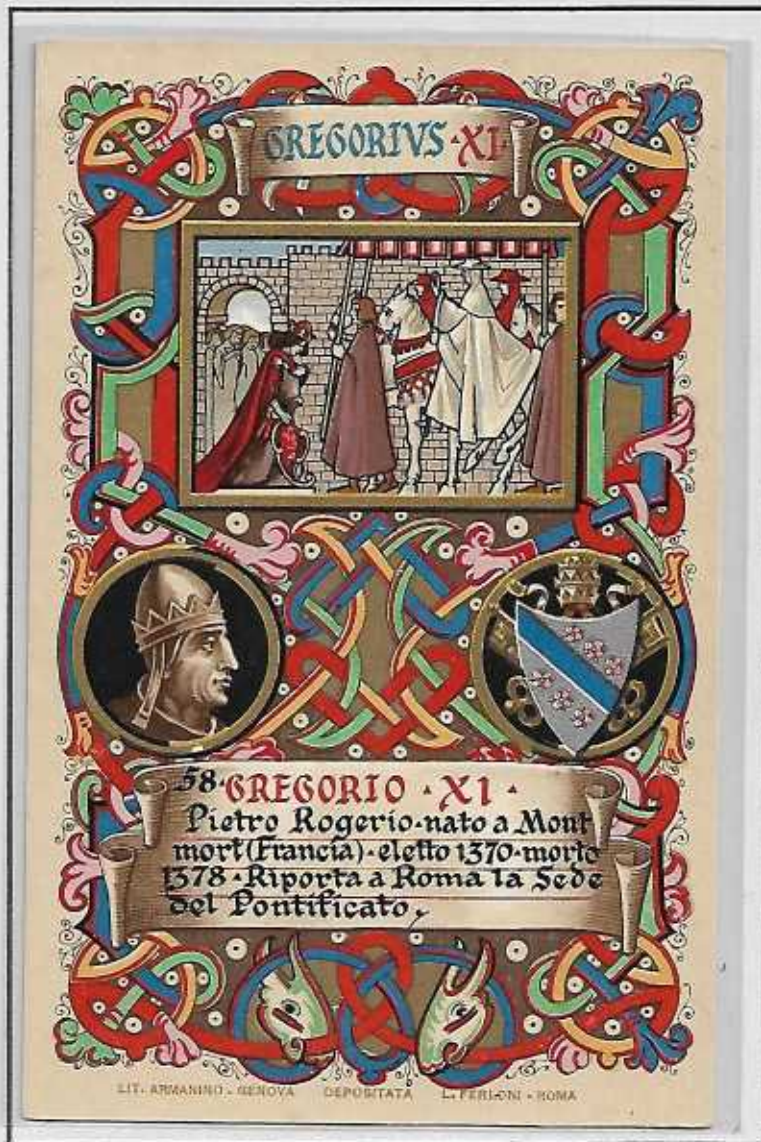 GREGORIVS·XI·
58·GREGORIO·XI·
Pietro Rogerio·nato a Mont
mort (Francia)·eletto 1370·morto
1378·Riporta a Roma la Sede
del Pontificato.
LIT. ARMANINO - GENOVA DEPOSITATA L. FERLONI - ROMA